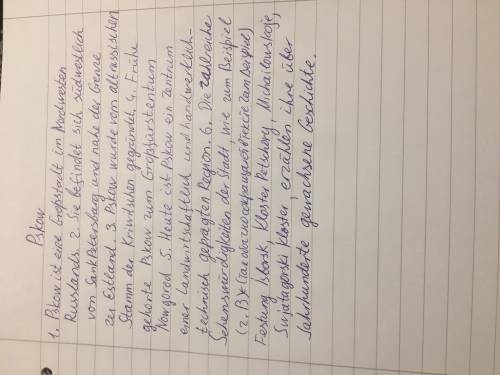 Pskow
1. Pskow ist eine Großstadt im Nordwesten
Russlands. 2. Sie befindet sich südwestlich
von Sankt Petersburg und nahe der Grenze
zu Estland. 3 Pskow wurde vom altrussischen
Stamm der Kriwitschen gegründet. 4. Frühe
gehörte Pskow zum Großfürstentum
Nowgorod 5. Heute ist Pskow ein Zentrum
einer Landwirtschaftlich und handwerklich-
technisch geprägten Region. 6. Die zahlreiche
Sehenswürdigkeiten der Stadt, wie zum Beispiel
(z. B)* (так обычно сокращают в тексте zum Beispiel)
Festung Isborsk, Kloster Petschory, Michailowskoje,
Swjatagorski Kloster, erzählen ihre über
Jahrhunderte gewachsene Geschichte.